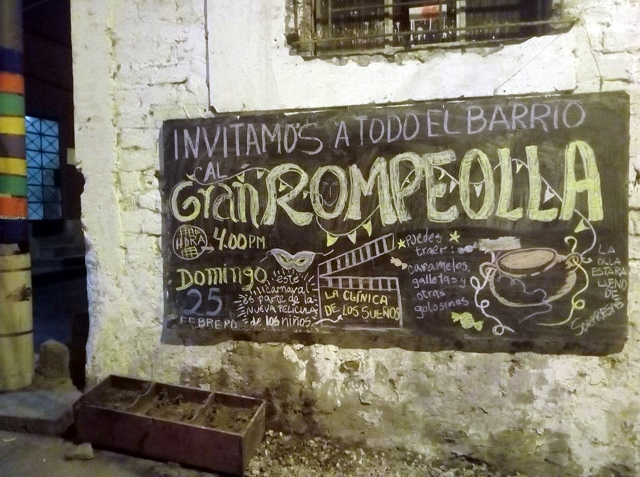 INVITAMOS A TODO EL BARRIO
AL
Gran ROMPEOLLA
HORA
4:00 PM
Domingo
25
FEBRERO
este
carnaval
es parte de la
NUEVA PELICULA
de los niños
LA CLÍNICA
DE LOS SUEÑOS
Puedes
traer:
caramelos,
galletas y
otras
golosinas
LA
OLLA
ESTARÁ
LLENO
DE
SORPRESAS